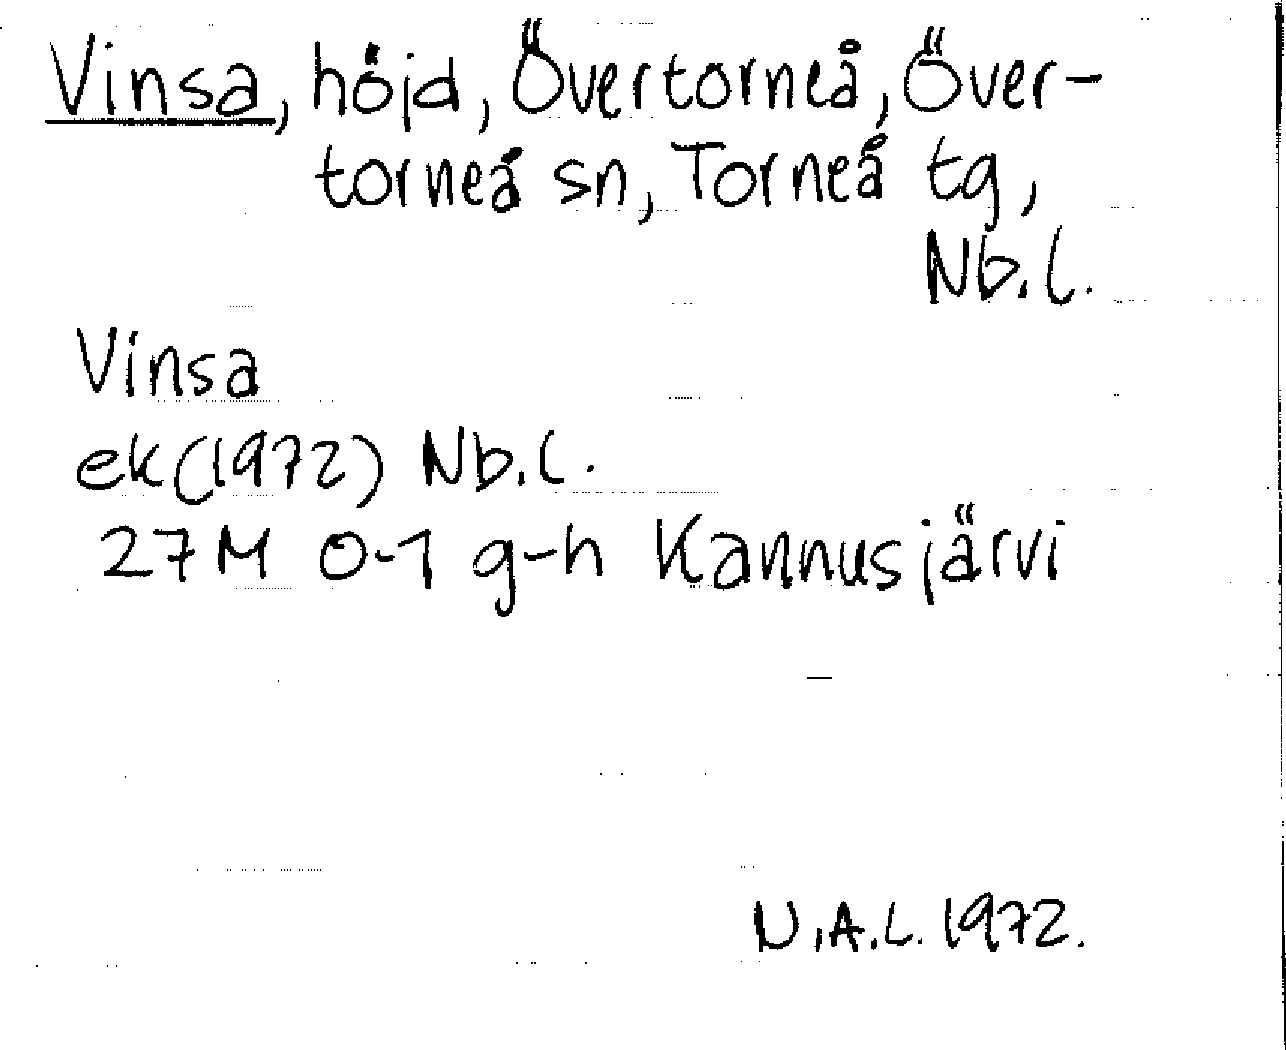 Vinsa, höjd, Övertorneå, Över-
torneå sn, Torneå tg,
Nb.l.
Vinsa
ek(1972) Nb.l.
27M 0-1 g-h Kannusjärvi
N.A.L. 1972.